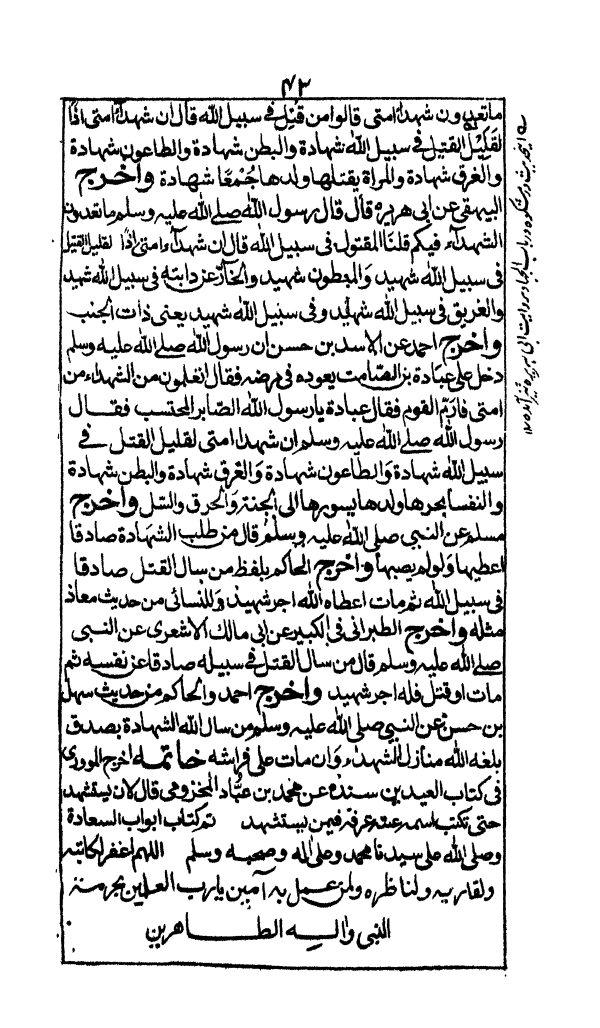 ٤٣
ماتعدون شهداء امتى قالوا من قتل فى سبيل الله قال ان شهداء امتى اذا
لقليل القتيل فى سبيل الله شهادة والبطن شهادة والطاعون شهادة
والغرق شهادة والمرأة يقتلها ولدها جُمْعًا شهادة واخرج
البيهقى عن ابى هريرة قال قال رسول الله صلى الله عليه وسلم ماتعدون
الشهداء فيكم قلنا المقتول فى سبيل الله قال ان شهداء امتى اذا لقليل القتيل
فى سبيل الله شهيد والمبطون شهيد والخار عن دابته فى سبيل الله شهيد
والغريق فى سبيل الله شهيد وفى سبيل الله شهيد يعنى ذات الجنب
واخرج احمد عن الاسد بن حسن ان رسول الله صلى الله عليه وسلم
دخل على عبادة بن الصامت يعوده فى مرضه فقال اتعلمون من الشهداء من
امتى فارم القوم فقال عبادة يارسول الله الصابر المحتسب فقال
رسول الله صلى الله عليه وسلم ان شهدا امتى لقليل القتل فى
سبيل الله شهادة والطاعون شهادة والغرق شهادة والبطن شهادة
والنفسا يجرها ولدها يسورها الى الجنة والحرق والسّل واخرج
مسلم عن النبى صلى الله عليه وسلم قال من طلب الشهادة صادقا
اعطيها ولولم يصبها واخرج الحاكم بلفظ من سال القتل صادقا
فى سبيل الله ثم مات اعطاه الله اجر شهيد وللنسائى من حديث معاذ
مثله واخرج الطبرانى فى الكبير عن ابى مالك الاشعرى عن النبى
صلى الله عليه وسلم قال من سال القتل فى سبيله صادقا عن نفسه ثم
مات او قتل فله اجر شهيد واخرج احمد والحاكم من حديث سهل
بن حسن عن النبى صلى الله عليه وسلم من سال الله الشهادة بصدق
بلغه الله منازل الشهداء وان مات على فراشه خاتمه اخرج
فى كتاب العيد بن سنده عن محمد بن عبّاد المخزومى قال لان يستشهد
حتى تكتب اسمه عند عرفة فيمن يستشهد تم كتاب ابواب السعادة
وصلى الله على سيدنا محمد وعلى اله وصحبه وسلم اللهم اغفر لكاتبه
ولقاريه ولناظره ولمن عمل به آمين يارب العلمين بحرمة
النبى واله الطاهرين